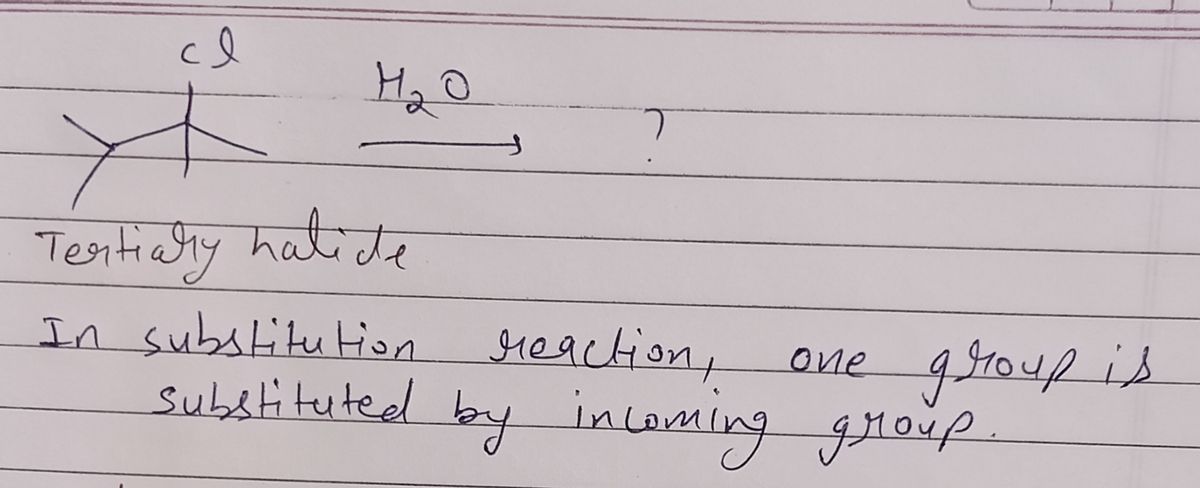 Cl
H₂O
?
Tertiary halide
In substitution reaction, one group is
substituted by incoming group.